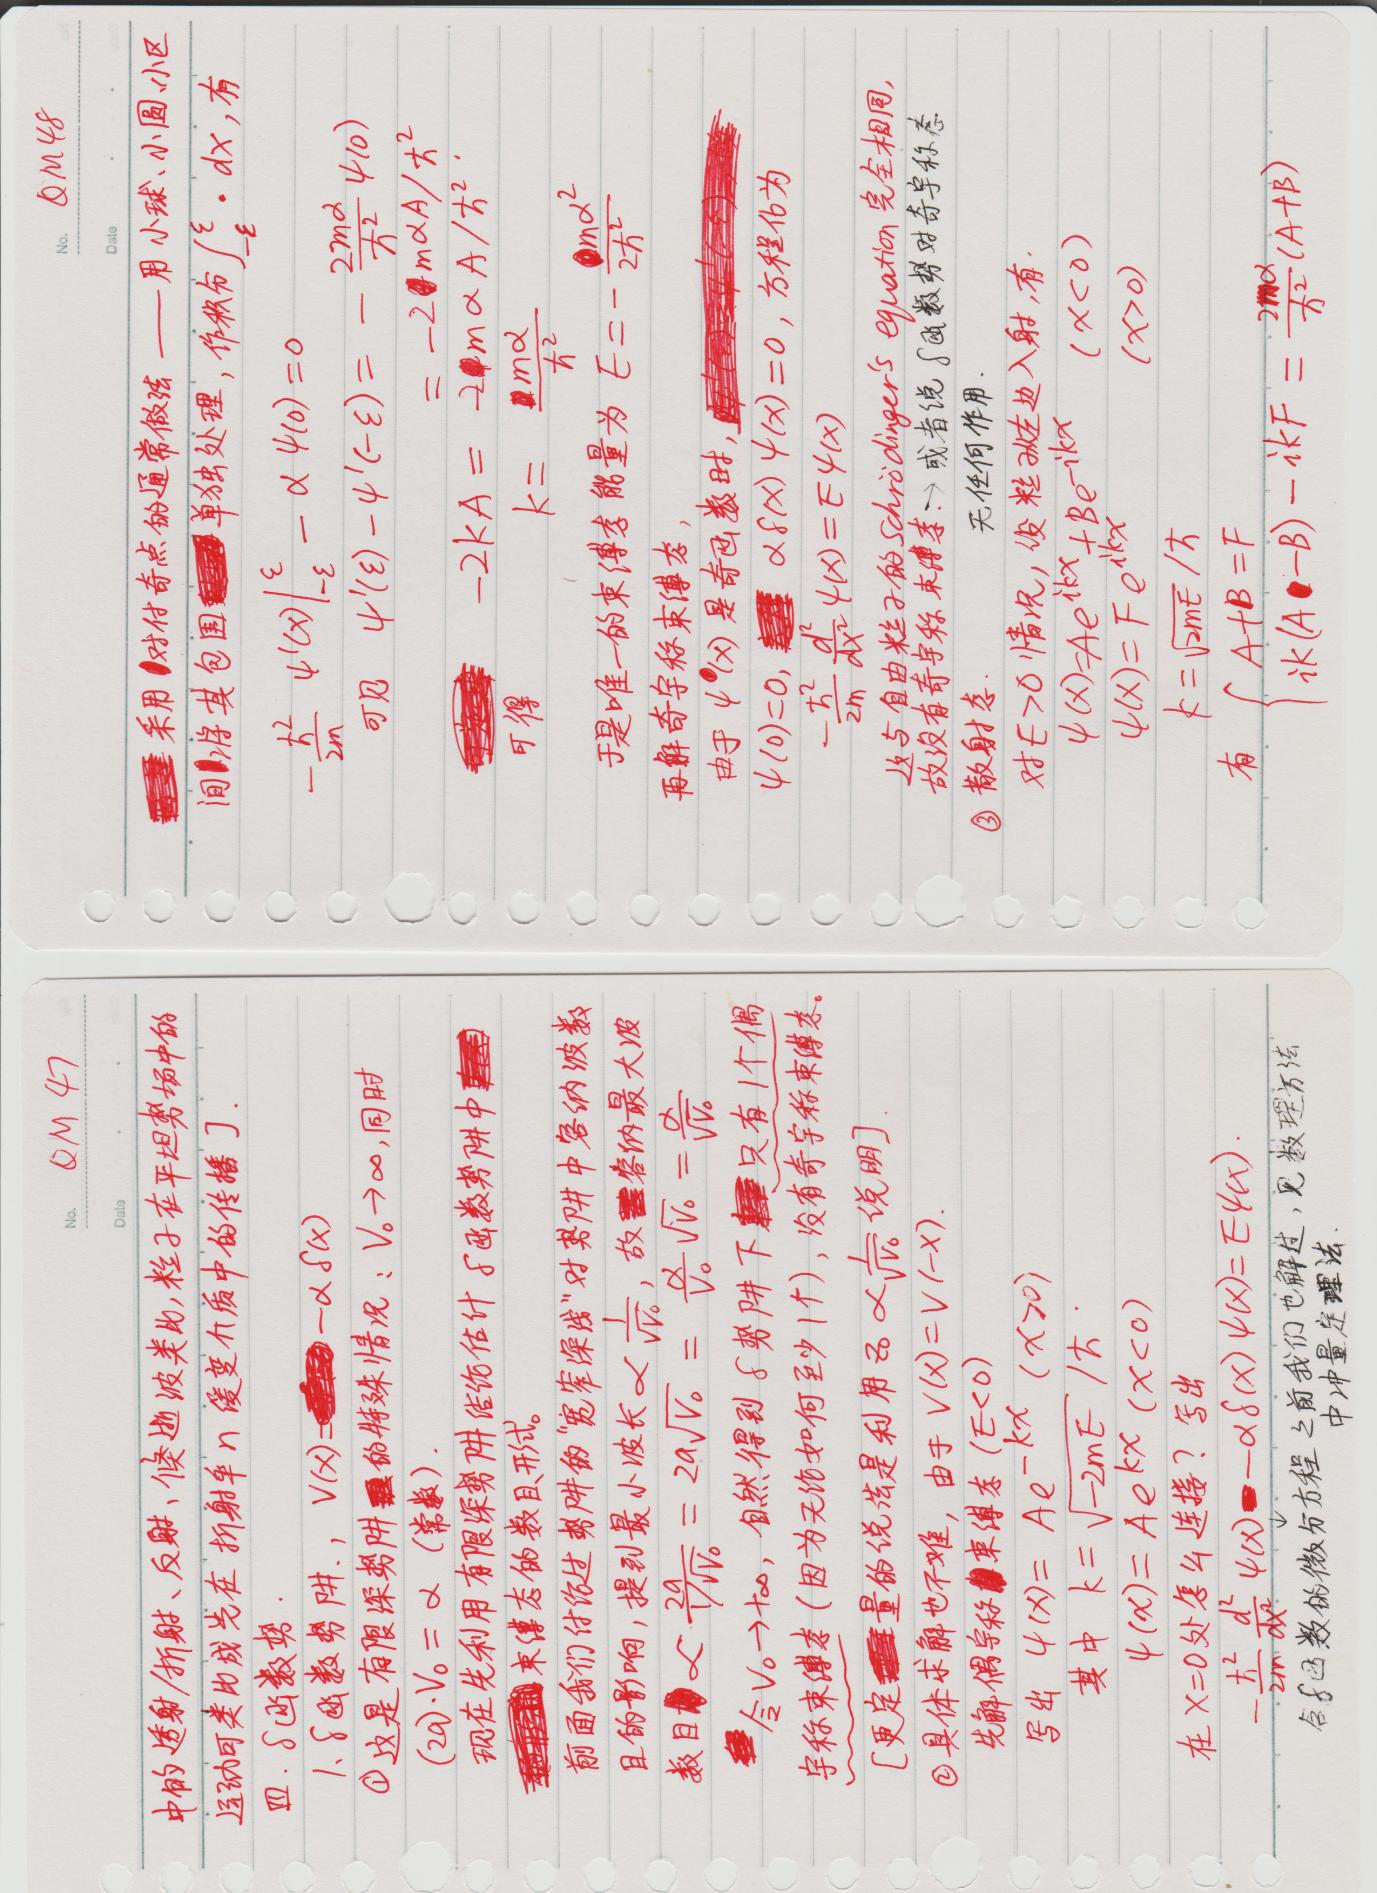 No. QM 47
Date
中的透射/折射、反射、倏逝波类比,粒子在平坦势场中的
运动可类比成光在折射率n缓变介质中的传播].
四. δ函数势.
1. δ函数势阱., V(x)= -αδ(x)
① 这是有限深势阱的特殊情况: V₀→∞,同时
(2a)·V₀ = α (常数).
现在先利用有限深势阱结论估计δ函数势阱中
束缚态的数目、形式。
前面我们讨论过势阱的"宽窄深浅"对势阱中容纳波数
目的影响,提到最小波长∝ 1/√V₀, 故容纳最大波
数目 ∝ 2a/(1/√V₀) = 2a√V₀ = α/V₀ √V₀ = α/√V₀
令V₀→+∞, 自然得到δ势阱下只有1个偶
宇称束缚态(因为无论如何至少1个), 没有奇宇称束缚态。
[更定量的说法是利用 z₀ ∝ 1/√V₀ 说明].
② 具体求解也不难, 由于 V(x)=V(-x).
先解偶宇称束缚态 (E<0)
写出 ψ(x)= Ae^{-kx} (x>0)
其中 k = √(-2mE) /ℏ.
ψ(x)= Ae^{kx} (x<0)
在 x=0处怎么连接? 写出
-ℏ²/2m d²/dx² ψ(x) -αδ(x)ψ(x)=Eψ(x).
↓
含δ函数的微分方程之前我们也解过,见数理方法
中冲量定理法.
No. QM48
Date
采用对付奇点的通常做法 —— 用小球、小圆、小区
间将其包围单独处理, 作积分∫_{-ε}^{ε} · dx, 有
-ℏ²/2m ψ'(x)|_{-ε}^{ε} - αψ(0)=0
可见 ψ'(ε)-ψ'(-ε)= -2mα/ℏ² ψ(0)
= -2mαA/ℏ²
-2kA = -2mαA/ℏ².
可得 k = mα/ℏ²
于是唯一的束缚态能量为 E = -mα²/2ℏ²
再解奇宇称束缚态,
由于ψ(x)是奇函数时,
ψ(0)=0, αδ(x)ψ(x)=0, 方程化为
-ℏ²/2m d²/dx² ψ(x)=Eψ(x)
这与自由粒子的Schrödinger's equation完全相同,
故没有奇宇称束缚态. → 或者说δ函数势对奇宇称态
无任何作用.
③ 散射态.
对E>0情况, 设粒子从左边入射, 有.
ψ(x)=Ae^{ikx}+Be^{-ikx} (x<0)
ψ(x)=Fe^{ikx} (x>0)
k=√2mE /ℏ
有 { A+B=F
ik(A-B)-ikF = 2mα/ℏ² (A+B)